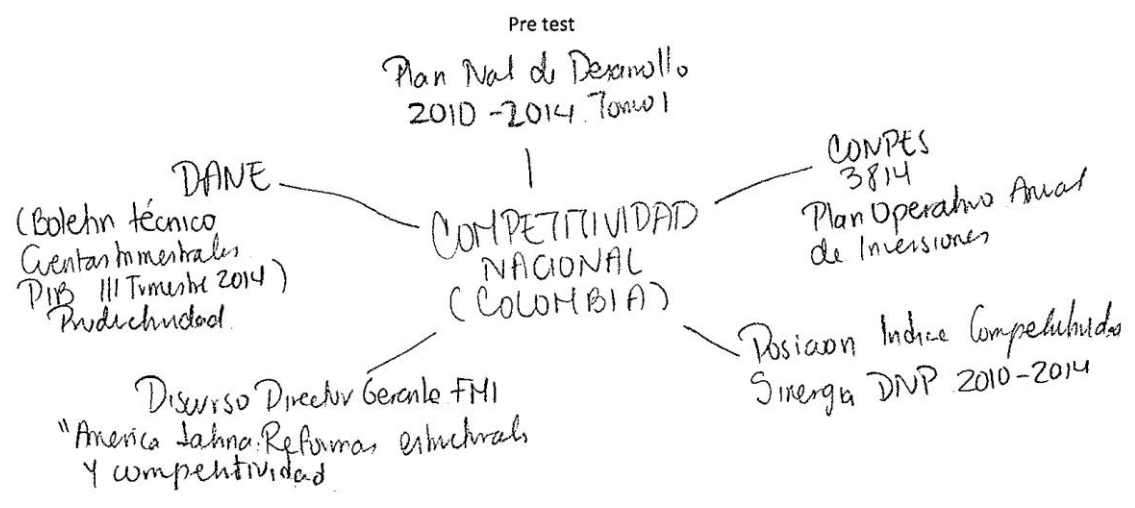 Pre test
Plan Nal de Desarrollo
2010 - 2014 Tomo 1
DANE
(Boletin técnico
Cuentas trimestrales
PIB III Trimestre 2014)
Productividad.
COMPETITIVIDAD
NACIONAL
(COLOMBIA)
CONPES
3814
Plan Operativo Anual
de Inversiones
Posicion Indice Competitividad
Sinergia DNP 2010-2014
Discurso Director Gerente FMI
"America Latina: Reformas estructurals
Y competitividad